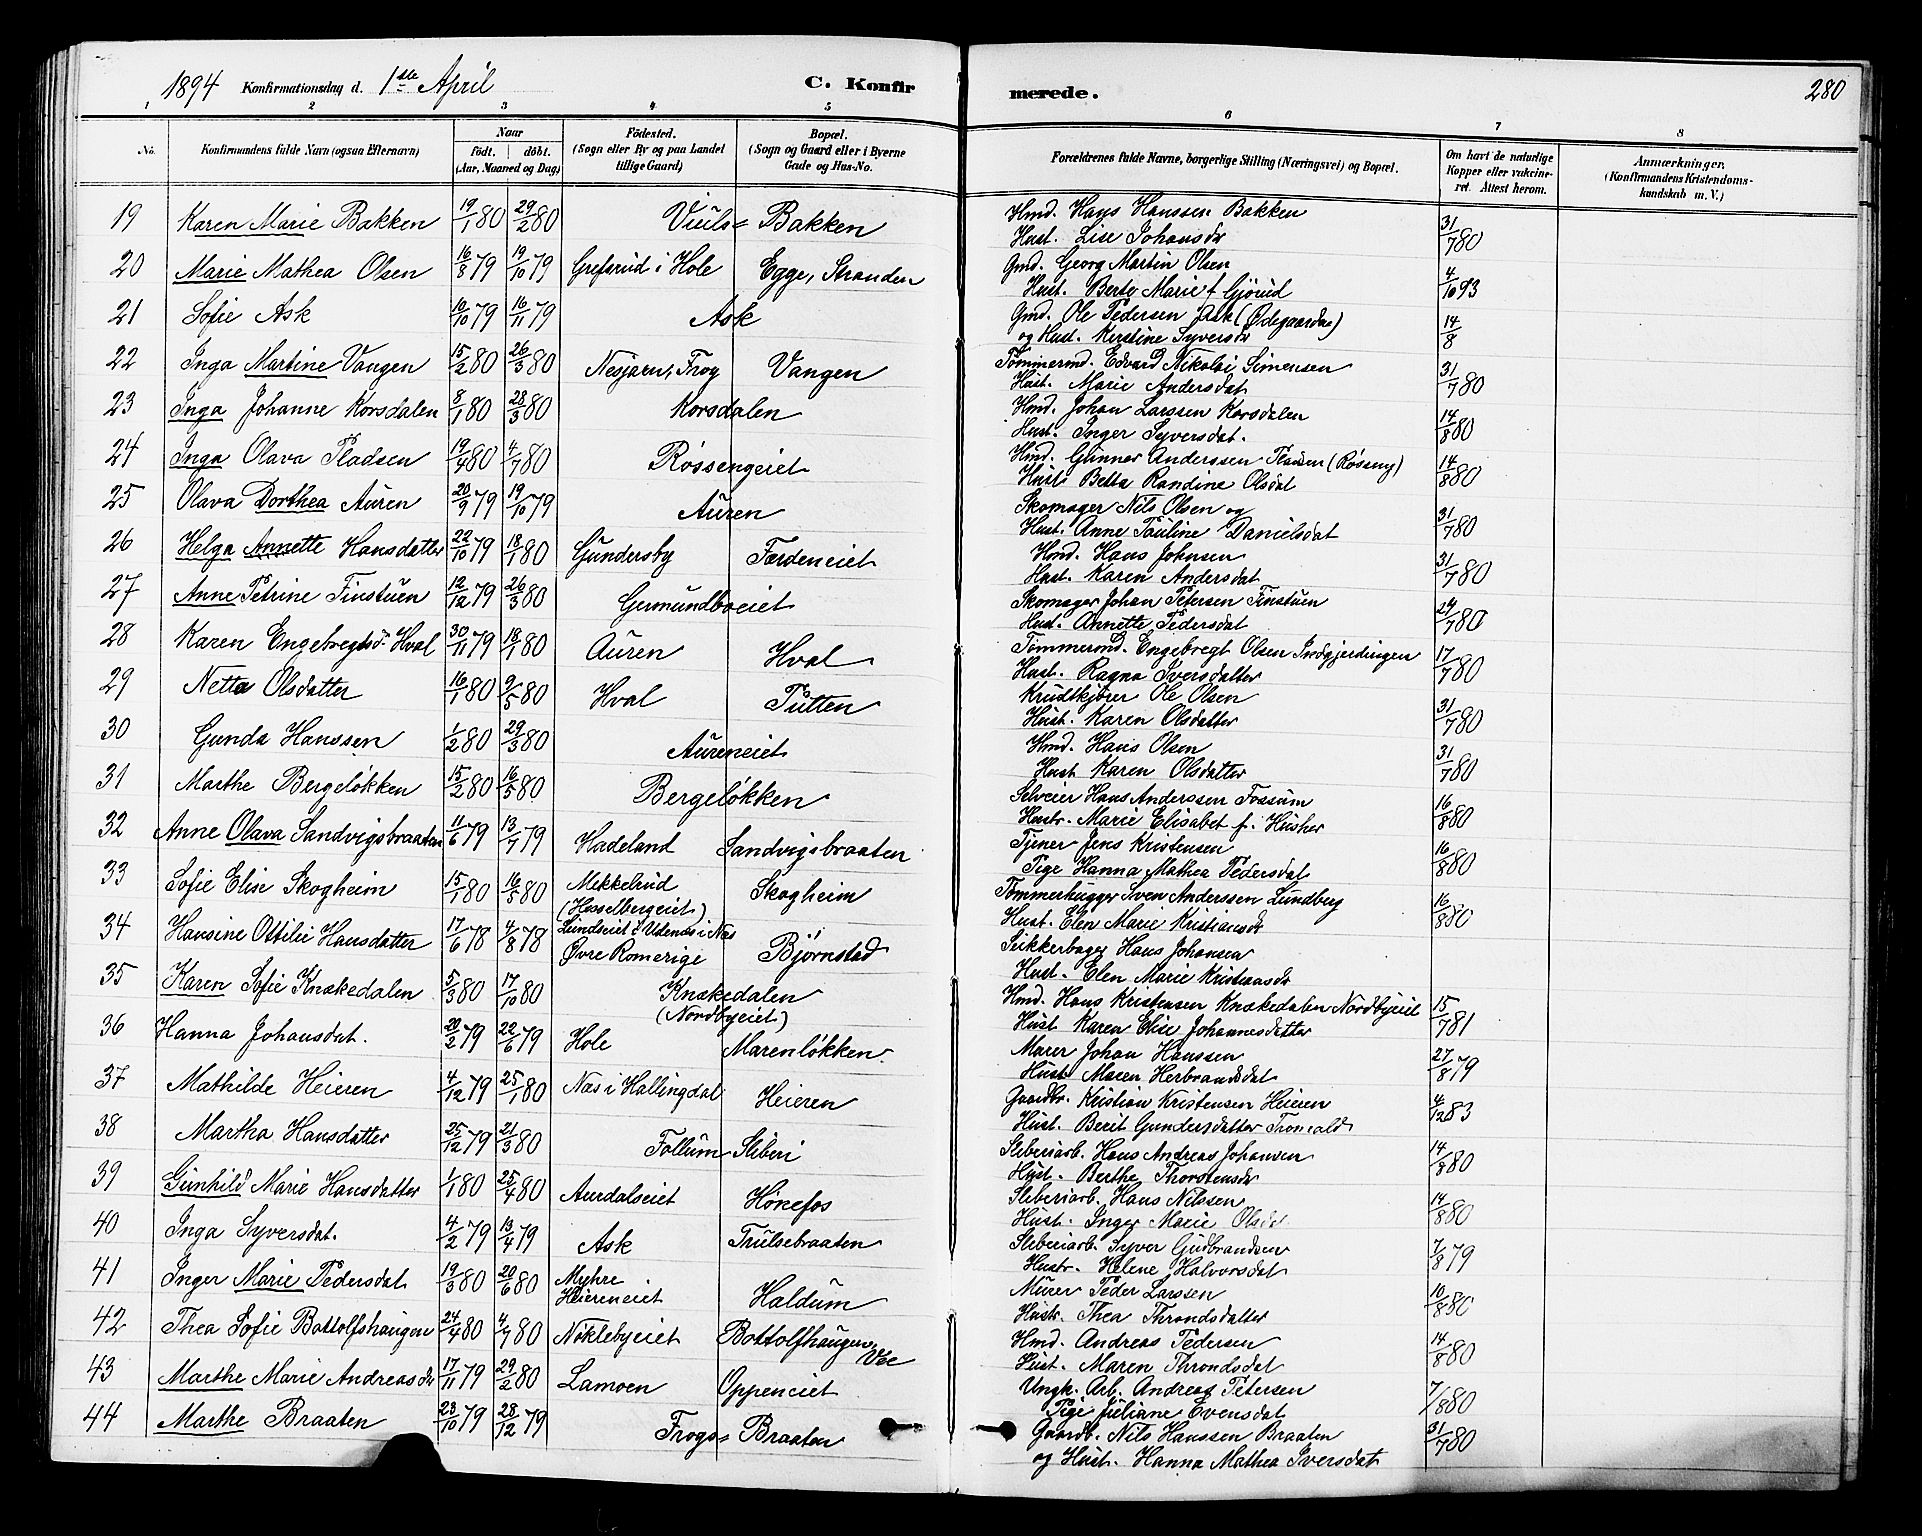 1894 Konfirmationsdag d. 1ste April C. Konfirmerede. 280
1 2 3 4 5 6 7 8
No. Konfirmandens fulde Navn (ogsaa Efternavn) Naar födt. döbt. (Aar, Maaned og Dag) Födested. (Sogn eller By og paa Landet tillige Gaard) Bopæl. (Sogn og Gaard eller i Byerne Gade og Hus-No. Forældrenes fulde Navne, borgerlige Stilling (Næringsvei) og Bopæl. Om havt de naturlige Kopper eller vakcineret. Attest herom. Anmærkninger. (Konfirmandens Kristendomskundskab m. V.)
19 Karen Marie Bakken 19/1 80 29/2 80 Viuls= Bakken Hmd. Hans Hanssen Bakken 31/7 80
Hust. Lise Johansdr
20 Marie Mathea Olsen 16/8 79 19/10 79 Grefsrud i Hole Egge, Stranden Gmd. Georg Martin Olsen 4/10 93
Hust. Berte Marie f Gjörud
21 Sofie Ask 10/10 79 16/11 79 Ask Gmd. Ole Pedersen Ask (Ødegaarden) 14/8
og Hust. Kerstine Syversdr
22 Inga Martine Vangen 15/2 80 26/3 80 Nesjarn, Frog Vangen Tömmermd. Edvard Nikolai Simensen 31/7 80
Hust. Marie Andersdat
23 Inga Johanne Korsdalen 8/1 80 28/3 80 Korsdalen Hmd. Johan Larssen Korsdalen 14/8 80
Hust. Inger Syversdat.
24 Inga Olava Pladsen 19/4 80 4/7 80 Røssengeiet Hmd. Gunner Anderssen Pladsen (Røseng) 14/8 80
Hust. Betta Randine Olsdat
25 Olava Dorthea Auren 20/9 79 19/10 79 Auren Skomager Nils Olsen og 31/7 80
Hust. Anne Pauline Danielsdat
26 Helga Annette Hansdatter 22/10 79 18/1 80 Gundersby Færdeneiet Hmd. Hans Johnsen 31/7 80
Hust. Karen Andersdat
27 Anne Petrine Finstuen 12/12 79 26/3 80 Germundboeiet Skomager Johan Petersen Finstuen 24/7 80
Hust. Annette Pedersdat
28 Karen Engebregtsd. Hval 30/11 79 18/1 80 Auren Hval Tömmermd. Engebregt Olsen 17/7 80
Hust. Ragna Iversdatter
29 Netta Olsdatter 16/1 80 9/5 80 Hval Tutten Krudtkjører Ole Olsen 31/7 80
Hust. Karen Olsdatter
30 Gunda Hanssen 1/2 80 29/3 80 Aureneiet Hmd. Hans Olsen 31/7 80
Hust Karen Olsdatter
31 Marthe Bergeløkken 15/2 80 16/5 80 Bergeløkken Selveier Hans Anderssen Fossum 16/8 80
Hustr. Marie Elisabet f. Husher
32 Anne Olava Sandvigsbraaten 11/6 79 13/7 79 Hadeland Sandvigsbraaten Tjener Jens Kristensen 16/8 80
Pige Hanna Mathea Pedersdat
33 Sofie Elise Skogheim 15/1 80 16/5 80 Mekkelrud (Hesselbergeiet) Skogheim Tömmerhugger Sven Anderssen Lundberg 16/8 80
Hust. Elen Marie Kristiansdr
34 Hansine Ottilie Hansdatter 17/6 78 4/8 78 Lundseiet i Udenes i Næs Øvre Romerige Bjørnstad Hans Johansen
Hust. Elen Marie Kristiansdr
35 Karen Sofie Knækedalen 5/3 80 17/10 80 Knækedalen (Nordbyeiet) Hmd. Hans Kristensen Knækedalen Nordbyeiet 15/7 81
Hust Karen Elise Johannesdatter
36 Hanna Johansdat. 20/2 79 22/6 79 Hole Marenløkken. Murer Johan Hanssen 27/8 79
Hust Maren Herbrandsdat
37 Mathilde Heieren 4/12 79 25/1 80 Næs i Hallingdal Heieren Gaardbr. Kristian Kristensen Heieren 4/12 83
Hust. Berit Gundersdatter Tronvald
38 Martha Hansdatter 25/12 79 21/3 80 Follum Sliberi Sliberiarb. Hans Andreas Johansen 14/8 80
Hust. Berthe Thorstensdr
39 Gunhild Marie Hansdatter 1/1 80 25/4 80 Aurdalseiet Hønefos Sliberiarb. Hans Nilssen 14/8 80
Hust. Inger Marie Olsd
40 Inga Syversdat. 4/2 79 13/4 79 Ask Trulsebraaten Sliberiarb. Syver Gudbrandsen 7/8 79
Hustr. Helene Halvorsdat
41 Inger Marie Pedersdat 19/3 80 20/6 80 Myhre Heiereneiet Haldum Murer Peder Larssen 10/8 80
Hustr. Thea Throndsdatter
42 Thea Sofie Bottolfshaugen 24/4 80 4/7 80 Nøklebyeiet Bottolfhaugen, Vee Hmd. Andreas Pedersen 14/8 80
Hust. Maren Throndsdat
43 Marthe Marie Andreasdr 17/11 79 29/2 80 Lamoen Oppeneiet Ungk. Arb. Andreas Petersen 7/8 80
Pige Juliane Evensdat
44 Marthe Braaten 23/10 79 28/12 79 Frogs= Braaten Gaardb. Nils Hanssen Braaten 31/7 80
og Hust. Hanna Mathea Iversdat